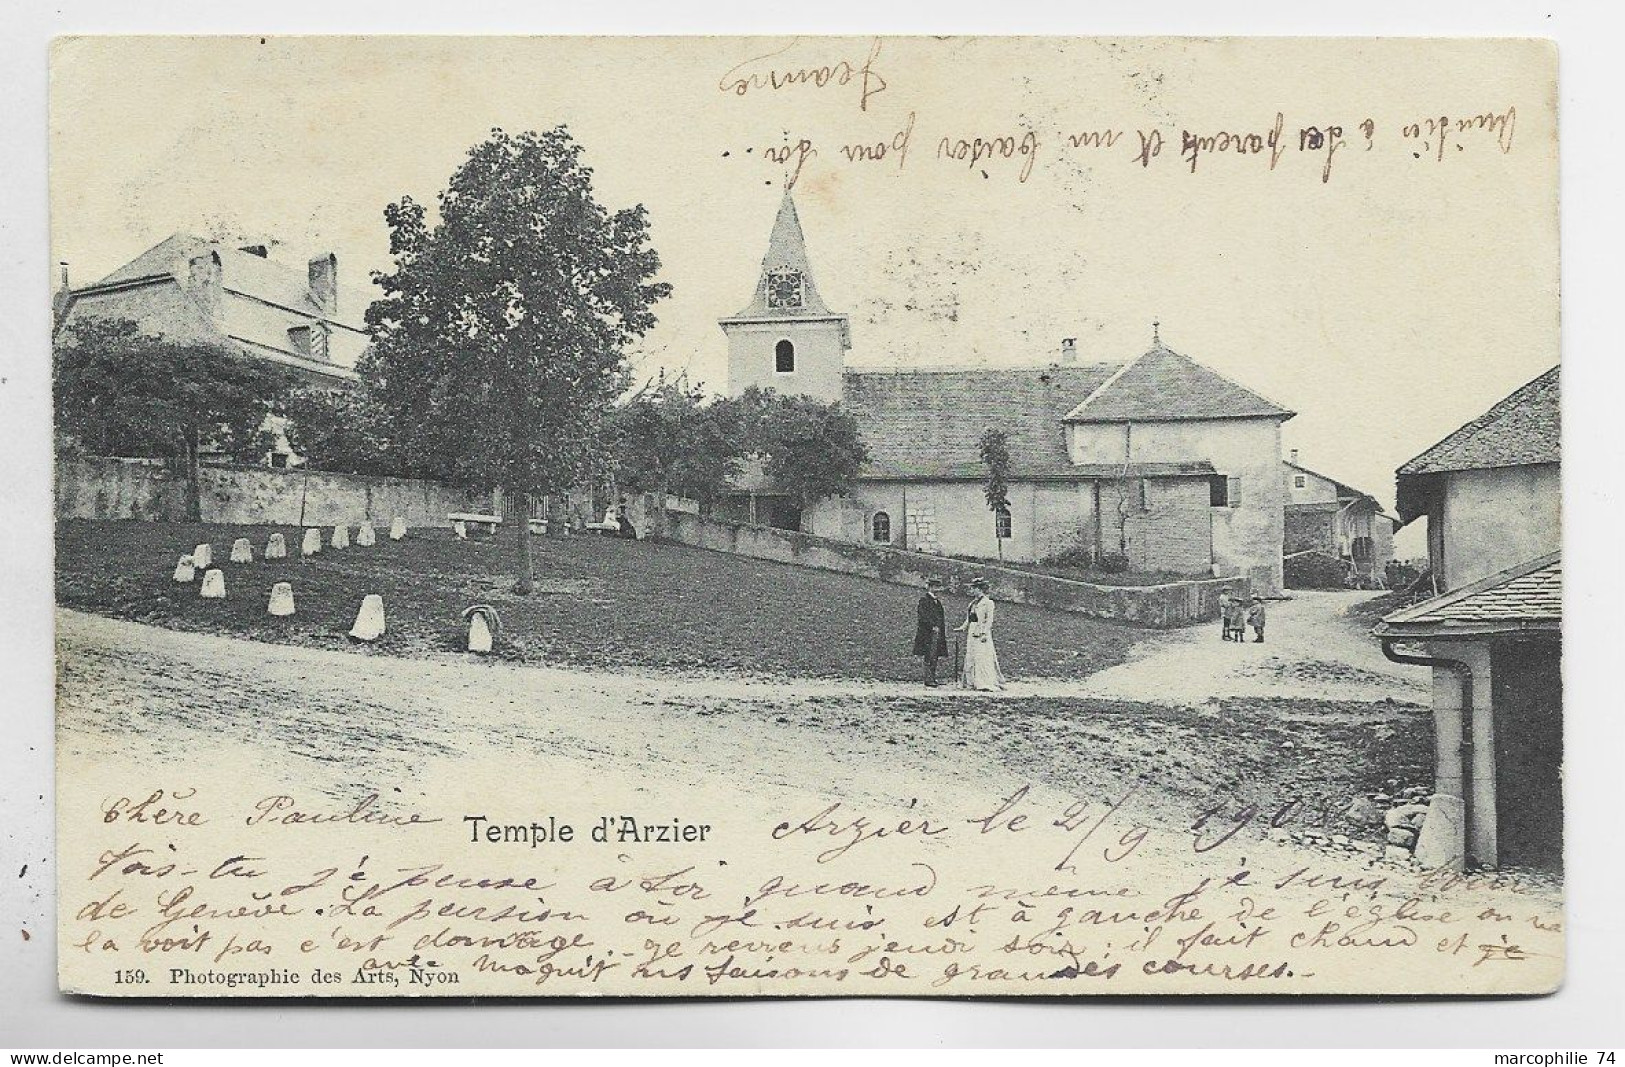 Amitiés à tes parents et un baiser pour toi.
Jeanne
Chère Pauline
Temple d'Arzier
Arzier le 2/9 190
Vois-tu je pense à toi quand même je suis
de Genève. La pension où je suis est à gauche de l'église on ne
la voit pas c'est domage. - je reviens jeudi soir : il fait chaud et je
avec nous faisons de grandes courses. -
159. Photographie des Arts, Nyon
www.delcampe.net
marcophilie 74